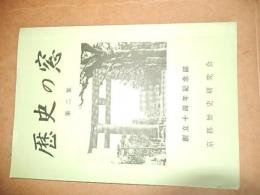 歴史の窓
第二集
創立十周年記念誌
京都歴史研究会